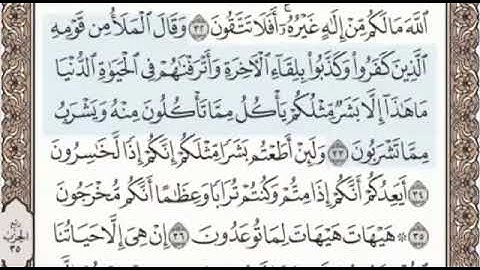 ٱللَّهَ مَا لَكُم مِّنْ إِلَٰهٍ غَيْرُهُۥٓ ۚ أَفَلَا تَتَّقُونَ ۝٣٢ وَقَالَ ٱلْمَلَأُ مِن قَوْمِهِ
ٱلَّذِينَ كَفَرُوا۟ وَكَذَّبُوا۟ بِلِقَآءِ ٱلْءَاخِرَةِ وَأَتْرَفْنَٰهُمْ فِى ٱلْحَيَوٰةِ ٱلدُّنْيَا
مَا هَٰذَآ إِلَّا بَشَرٌ مِّثْلُكُمْ يَأْكُلُ مِمَّا تَأْكُلُونَ مِنْهُ وَيَشْرَبُ
مِمَّا تَشْرَبُونَ ۝٣٣ وَلَئِنْ أَطَعْتُم بَشَرًا مِّثْلَكُمْ إِنَّكُمْ إِذًا لَّخَٰسِرُونَ
۝٣٤ أَيَعِدُكُمْ أَنَّكُمْ إِذَا مِتُّمْ وَكُنتُمْ تُرَابًا وَعِظَٰمًا أَنَّكُم مُّخْرَجُونَ
۝٣٥ ۞ هَيْهَاتَ هَيْهَاتَ لِمَا تُوعَدُونَ ۝٣٦ إِنْ هِىَ إِلَّا حَيَاتُنَا
ربع
الحزب
٣٥